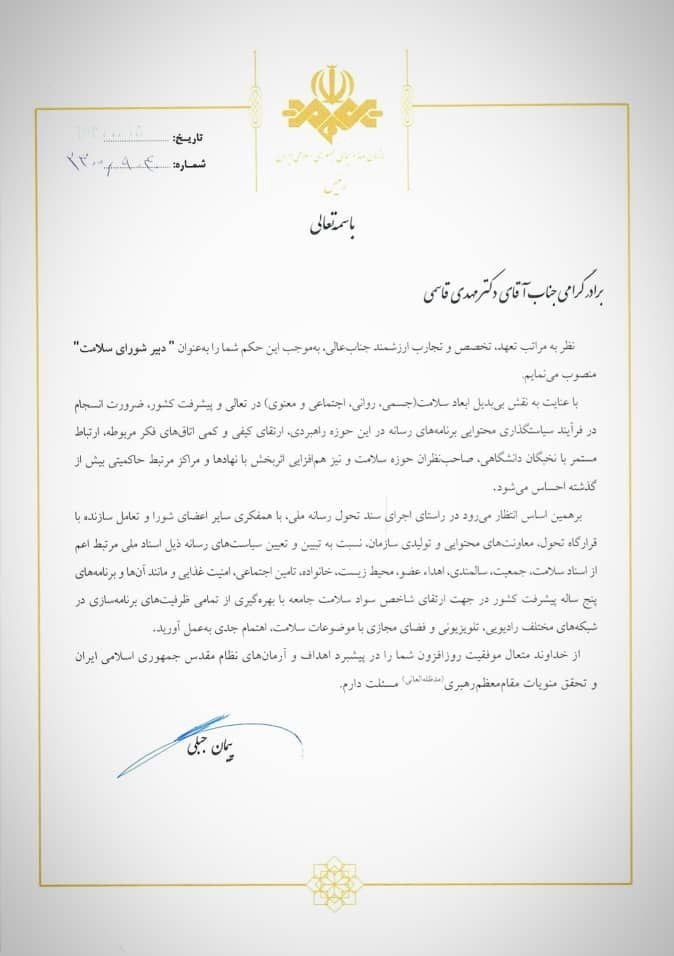 سازمان صدا و سیمای جمهوری اسلامی ایران
رئیس
تاریخ:
شماره:
باسمه‌تعالی
برادر گرامی جناب آقای دکتر مهدی قاسمی
نظر به مراتب تعهد، تخصص و تجارب ارزشمند جناب‌عالی، به‌موجب این حکم شما را به‌عنوان " دبیر شورای سلامت"
منصوب می‌نمایم.
با عنایت به نقش بی‌بدیل ابعاد سلامت(جسمی، روانی، اجتماعی و معنوی) در تعالی و پیشرفت کشور، ضرورت انسجام
در فرآیند سیاستگذاری محتوایی برنامه‌های رسانه در این حوزه راهبردی، ارتقای کیفی و کمی اتاق‌های فکر مربوطه، ارتباط
مستمر با نخبگان دانشگاهی، صاحب‌نظران حوزه سلامت و نیز هم‌افزایی اثربخش با نهادها و مراکز مرتبط حاکمیتی بیش از
گذشته احساس می‌شود.
برهمین اساس انتظار می‌رود در راستای اجرای سند تحول رسانه ملی، با همفکری سایر اعضای شورا و تعامل سازنده با
قرارگاه تحول، معاونت‌های محتوایی و تولیدی سازمان، نسبت به تبیین و تعیین سیاست‌های رسانه ذیل اسناد ملی مرتبط اعم
از اسناد سلامت، جمعیت، سالمندی، اهداء عضو، محیط زیست، خانواده، تامین اجتماعی، امنیت غذایی و مانند آن‌ها و برنامه‌های
پنج ساله پیشرفت کشور در جهت ارتقای شاخص سواد سلامت جامعه با بهره‌گیری از تمامی ظرفیت‌های برنامه‌سازی در
شبکه‌های مختلف رادیویی، تلویزیونی و فضای مجازی با موضوعات سلامت، اهتمام جدی به‌عمل آورید.
از خداوند متعال موفقیت روزافزون شما را در پیشبرد اهداف و آرمان‌های نظام مقدس جمهوری اسلامی ایران
و تحقق منویات مقام‌معظم‌رهبری(مدظله‌العالی) مسئلت دارم.
پیمان جبلی